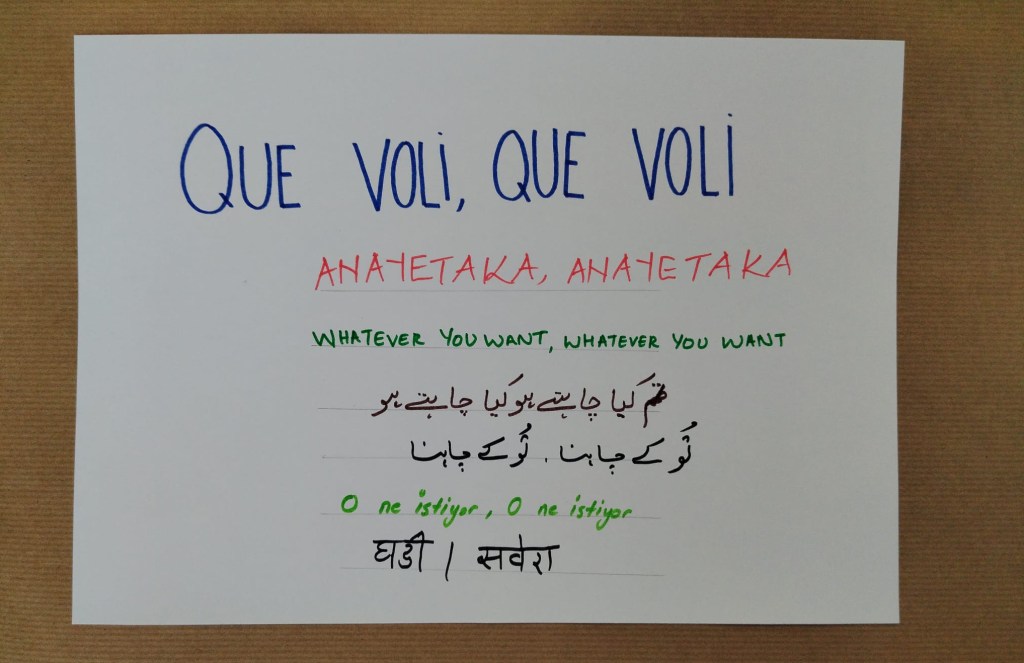 QUE VOLI, QUE VOLI
ANAYETAKA, ANAYETAKA
WHATEVER YOU WANT, WHATEVER YOU WANT
تم کیا چاہتے ہو کیا چاہتے ہو
تُو کے چاہنا . تُو کے چاہنا
O ne istiyor, O ne istiyor
घडी / सवेरा